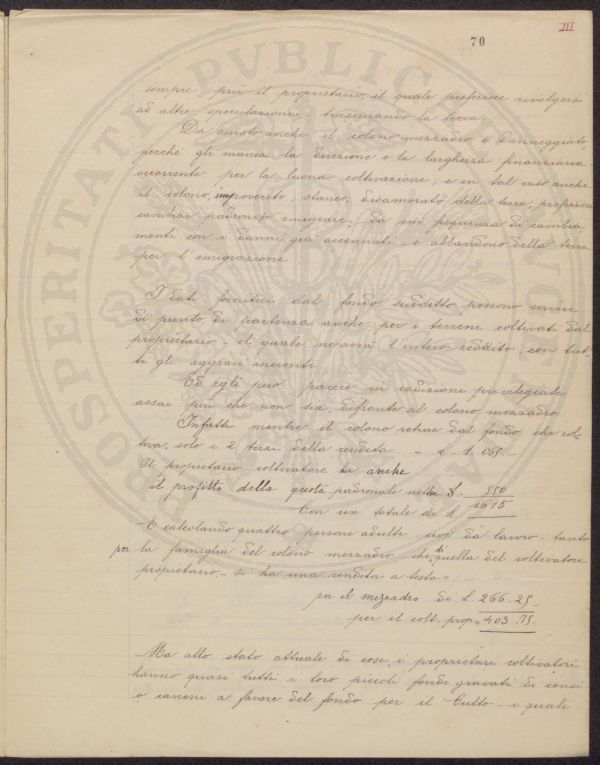 III
70
sempre più il proprietario, il quale preferisce rivolgersi
ad altre speculazioni, trascurando la terra.
Da questo anche il colono mezzadro è danneggiato,
perché gli manca la direzione e la larghezza finanziaria
occorrente per la buona coltivazione; e in tal caso anche
il colono, impoverito, stanco, disamorato della terra, preferisce
cambiar padrone, emigrare; da cui frequenza di cambia
menti con i danni già accennati e abbandono della terra
per l'emigrazione
I dati forniti dal fondo suddetto possono servire
di punto di partenza anche per i terreni coltivati dal
proprietario - il quale ne avrà l'intero reddito con tut-
ti gli aggravi inerenti.
Ed egli può parere in condizione privilegiate
assai più che non sia, difronte al colono mezzadro.
Infatti mentre il colono retrae dal fondo che col-
tiva, solo i 2 terzi della rendita " £. 1.065.-
Il proprietario coltivatore ha anche
il profitto della quota padronale netta £. 550
Con un totale di £. 1615
E calcolando quattro persone adulte cioè da lavoro tanto
per la famiglia del colono mezzadro che di quella del coltivatore
proprietario - si ha una rendita a testa =
per il mezzadro di £. 266.25.
per il colt. prop. " 403.75.
Ma allo stato attuale di cose, i proprietari coltivatori
hanno quasi tutti i loro piccoli fondi gravati di censi
o canoni a favore del fondo per il Culto - i quali
PROSPERITATI PVBLICAE